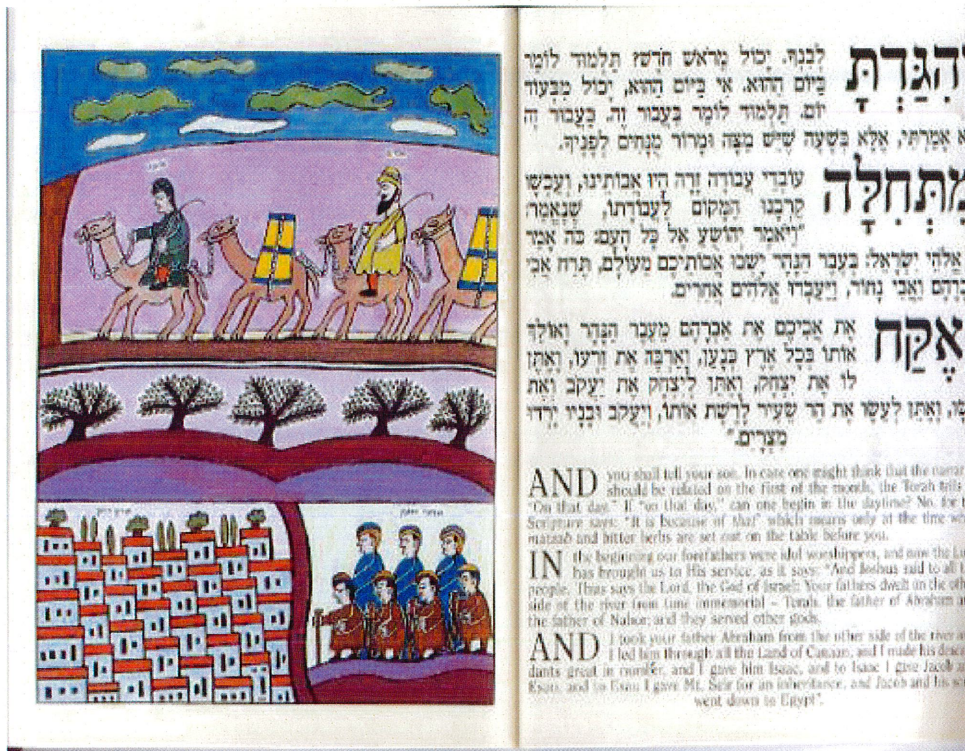 הִגַּדְתָּ לְבִנְךָ. יָכוֹל מֵרֹאשׁ חֹדֶשׁ תַּלְמוּד לוֹמַר
בַּיּוֹם הַהוּא. אִי בַּיּוֹם הַהוּא, יָכוֹל מִבְּעוֹד
יוֹם. תַּלְמוּד לוֹמַר בַּעֲבוּר זֶה. בַּעֲבוּר זֶה
אָמַרְתִּי, אֶלָּא בְּשָׁעָה שֶׁיֵּשׁ מַצָּה וּמָרוֹר מֻנָּחִים לְפָנֶיךָ.
מִתְּחִלָּה עוֹבְדֵי עֲבוֹדָה זָרָה הָיוּ אֲבוֹתֵינוּ, וְעַכְשָׁו
קֵרְבָנוּ הַמָּקוֹם לַעֲבוֹדָתוֹ, שֶׁנֶּאֱמַר:
"וַיֹּאמֶר יְהוֹשֻׁעַ אֶל כָּל הָעָם: כֹּה אָמַר
אֱלֹהֵי יִשְׂרָאֵל: בְּעֵבֶר הַנָּהָר יָשְׁבוּ אֲבוֹתֵיכֶם מֵעוֹלָם, תֶּרַח אֲבִי
וַאֲבִי נָחוֹר, וַיַּעַבְדוּ אֱלֹהִים אֲחֵרִים.
אֶקַּח אֶת אֲבִיכֶם אֶת אַבְרָהָם מֵעֵבֶר הַנָּהָר וָאוֹלֵךְ
אוֹתוֹ בְּכָל אֶרֶץ כְּנָעַן, וָאַרְבֶּה אֶת זַרְעוֹ, וָאֶתֵּן
לוֹ אֶת יִצְחָק, וָאֶתֵּן לְיִצְחָק אֶת יַעֲקֹב וְאֶת
וָאֶתֵּן לְעֵשָׂו אֶת הַר שֵׂעִיר לָרֶשֶׁת אוֹתוֹ, וְיַעֲקֹב וּבָנָיו יָרְדוּ
מִצְרָיִם."
AND you shall tell your son. In case one might think that the
should be related on the first of the month, the Torah
"On that day." If "on that day," can one begin in the daytime? No, for
Scripture says: "It is because of that" which means only at the time
matzah and bitter herbs are set out on the table before you.
IN the beginning our forefathers were idol worshippers, and now the
has brought us to His service, as it says: "And Joshua said to all
people. Thus says the Lord, the God of Israel: Your fathers dwelt on the
side of the river from time immemorial – Terah, the father of Abraham
the father of Nahor; and they served other gods.
AND I took your father Abraham from the other side of the river
I led him through all the Land of Canaan, and I made his
dants great in number, and I gave him Isaac, and to Isaac I gave Jacob
Esau, and to Esau I gave Mt. Seir for an inheritance, and Jacob and his
went down to Egypt".